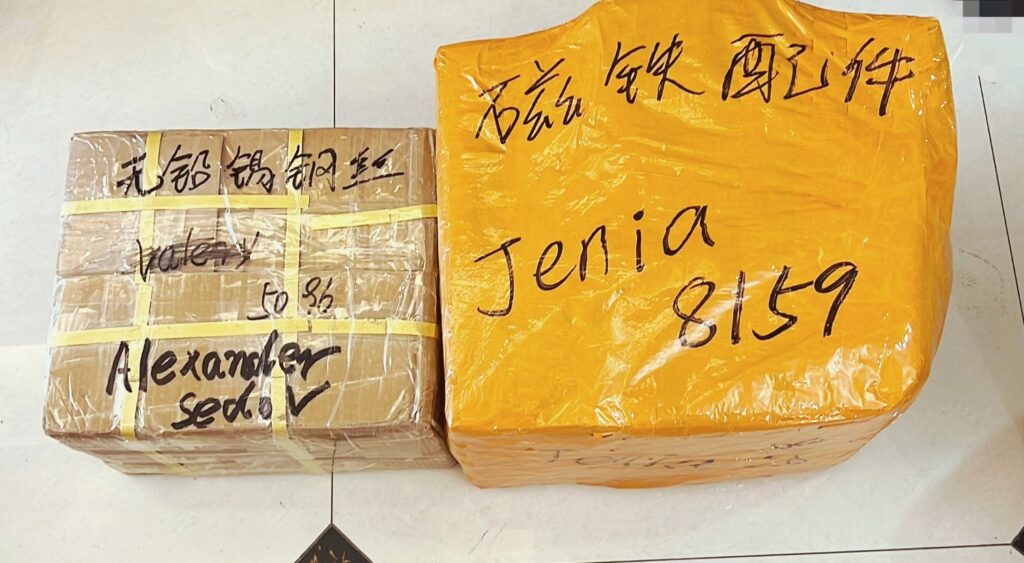 无铅锡铜丝
Valery
50 86
Alexander
sedov
磁铁配件
Jenia
8159